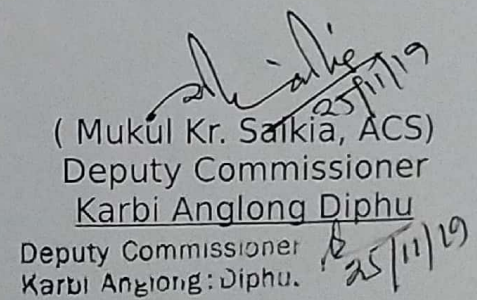 25/11/19
( Mukul Kr. Saikia, ACS)
Deputy Commissioner
Karbi Anglong Diphu
Deputy Commissioner
Karbi Anglong : Diphu.
25/11/19